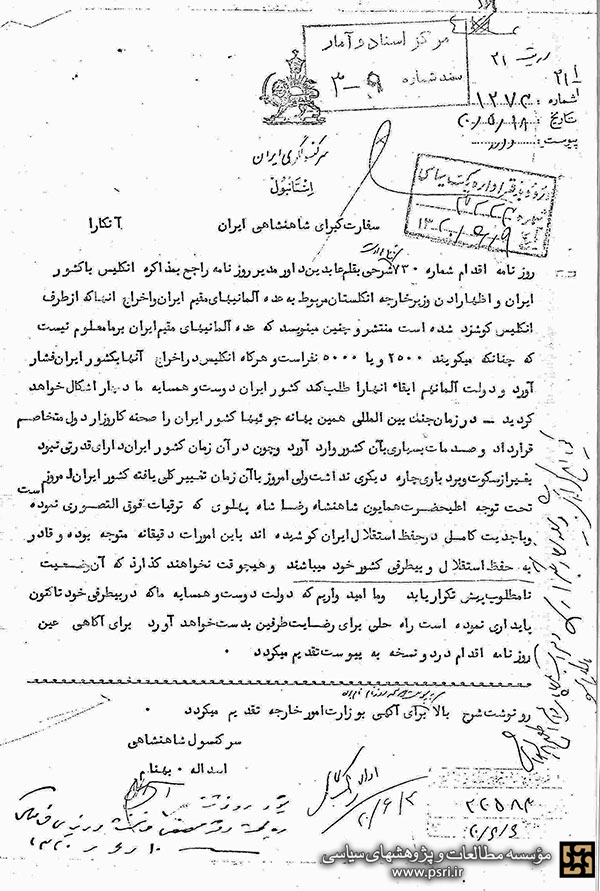 مرکز اسناد و آمار
سند شماره ۹-۳
شماره ۱۲۷۴
تاریخ ۲۰/۵/۱۸
پیوست دارد
سرکنسولگری ایران
اِستانبُول
سفارت کبرای شاهنشاهی ایران آنکارا
روزنامه اقدام شماره ۷۳۰ شرحی بقلم عابدین داور مدیر روزنامه راجع بمذاکره انگلیس با کشور
ایران و اظهارات وزیر خارجه انگلستان مربوط به عده آلمانیهای مقیم ایران و اخراج آنها که از طرف
انگلیس گوشزد شده است منتشر و چنین مینویسد که عده آلمانیهای مقیم ایران بر ما معلوم نیست
که چنانکه میگویند ۲۵۰۰ و یا ۵۰۰۰ نفر است و هرگاه انگلیس در اخراج آنها بکشور ایران فشار
آورد و دولت آلمان هم ابقاء آنها را طلب کند کشور ایران دوست و همسایه ما دچار اشکال خواهد
گردید – در زمان جنک بین المللی همین بهانه جوئیها کشور ایران را صحنه کارزار دول متخاصم
قرار داد و صدمات بسیاری بآن کشور وارد آورد و چون در آن زمان کشور ایران دارای قدرتی نبود
بغیر از سکوت و بردباری چاره دیگری نداشت ولی امروز با آن زمان تغییر کلی یافته کشور ایران امروز
تحت توجه اعلیحضرت همایون شاهنشاه رضا شاه پهلوی که ترقیات فوق التصوری نموده است
و با جدیت کامل در حفظ استقلال ایران کوشیده اند باین امورات دقیقانه متوجه بوده و قادر
به حفظ استقلال و بیطرفی کشور خود میباشند و هیچوقت نخواهند گذارد که آن وضعیت
نامطلوب پیش تکرار یابد و ما امید واریم که دولت دوست و همسایه ما که در بیطرفی خود تاکنون
پایداری نموده است راه حلی برای رضایت طرفین بدست خواهد آورد برای آگاهی عین
روزنامه اقدام در دو نسخه به پیوست تقدیم میگردد ۰
رونوشت شرح بالا برای آگهی بوزارت امور خارجه تقدیم میگردد ۰
سرکنسول شاهنشاهی
اسداله ۰ بهنام
۲۰/۶/۴
۲۲۵۸۴
۲۰/۶/۶
مؤسسه مطالعات و پژوهشهای سیاسی
www.psri.ir